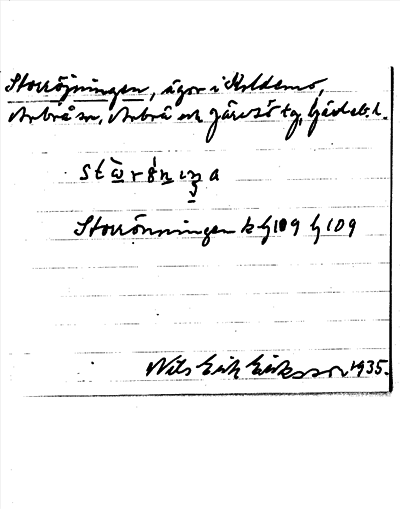 Storröjningen, ägor i Koldemo,
Arbrå sn, Arbrå och Järvsö tg, Gävleb. l.
stɷ̀rǿnıŋa
Storrönningen b G 109 G 109
Nils Erik Eriksson 1935.